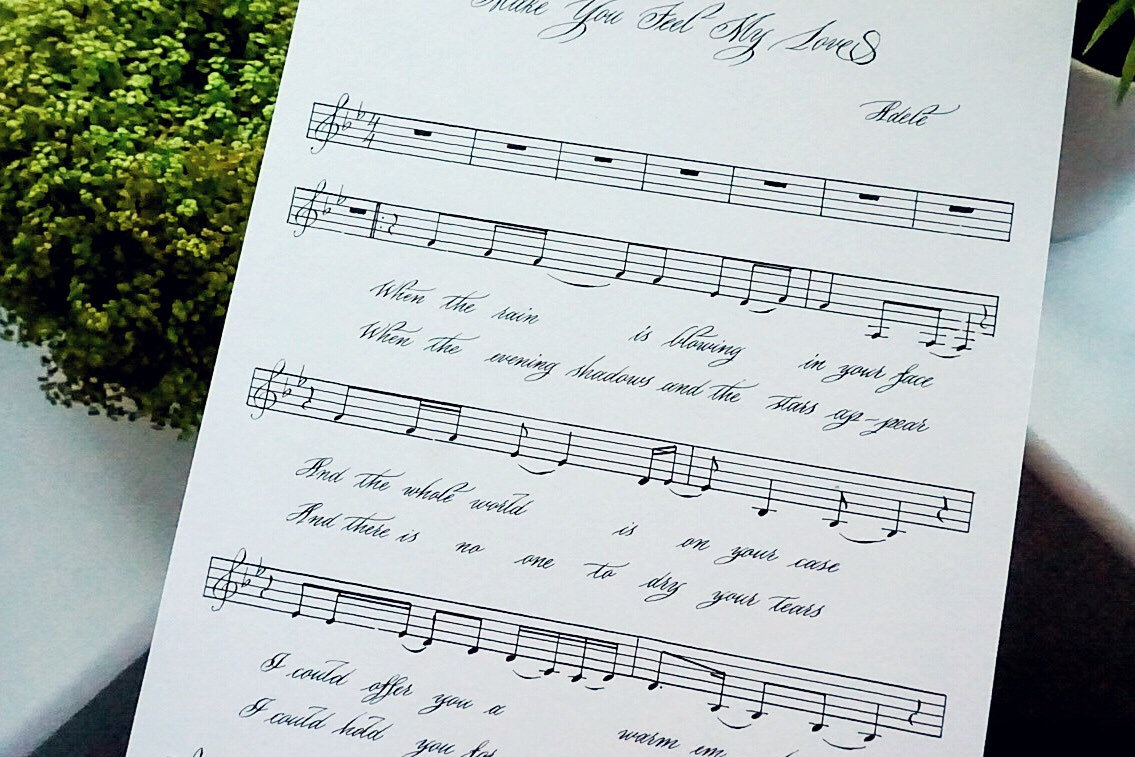 Make You Feel My Love
Adele
4
4
When the rain is blowing in your face
When the evening shadows and the stars ap-pear
And the whole world is on your case
And there is no one to dry your tears
I could offer you a warm em
I could hold you for